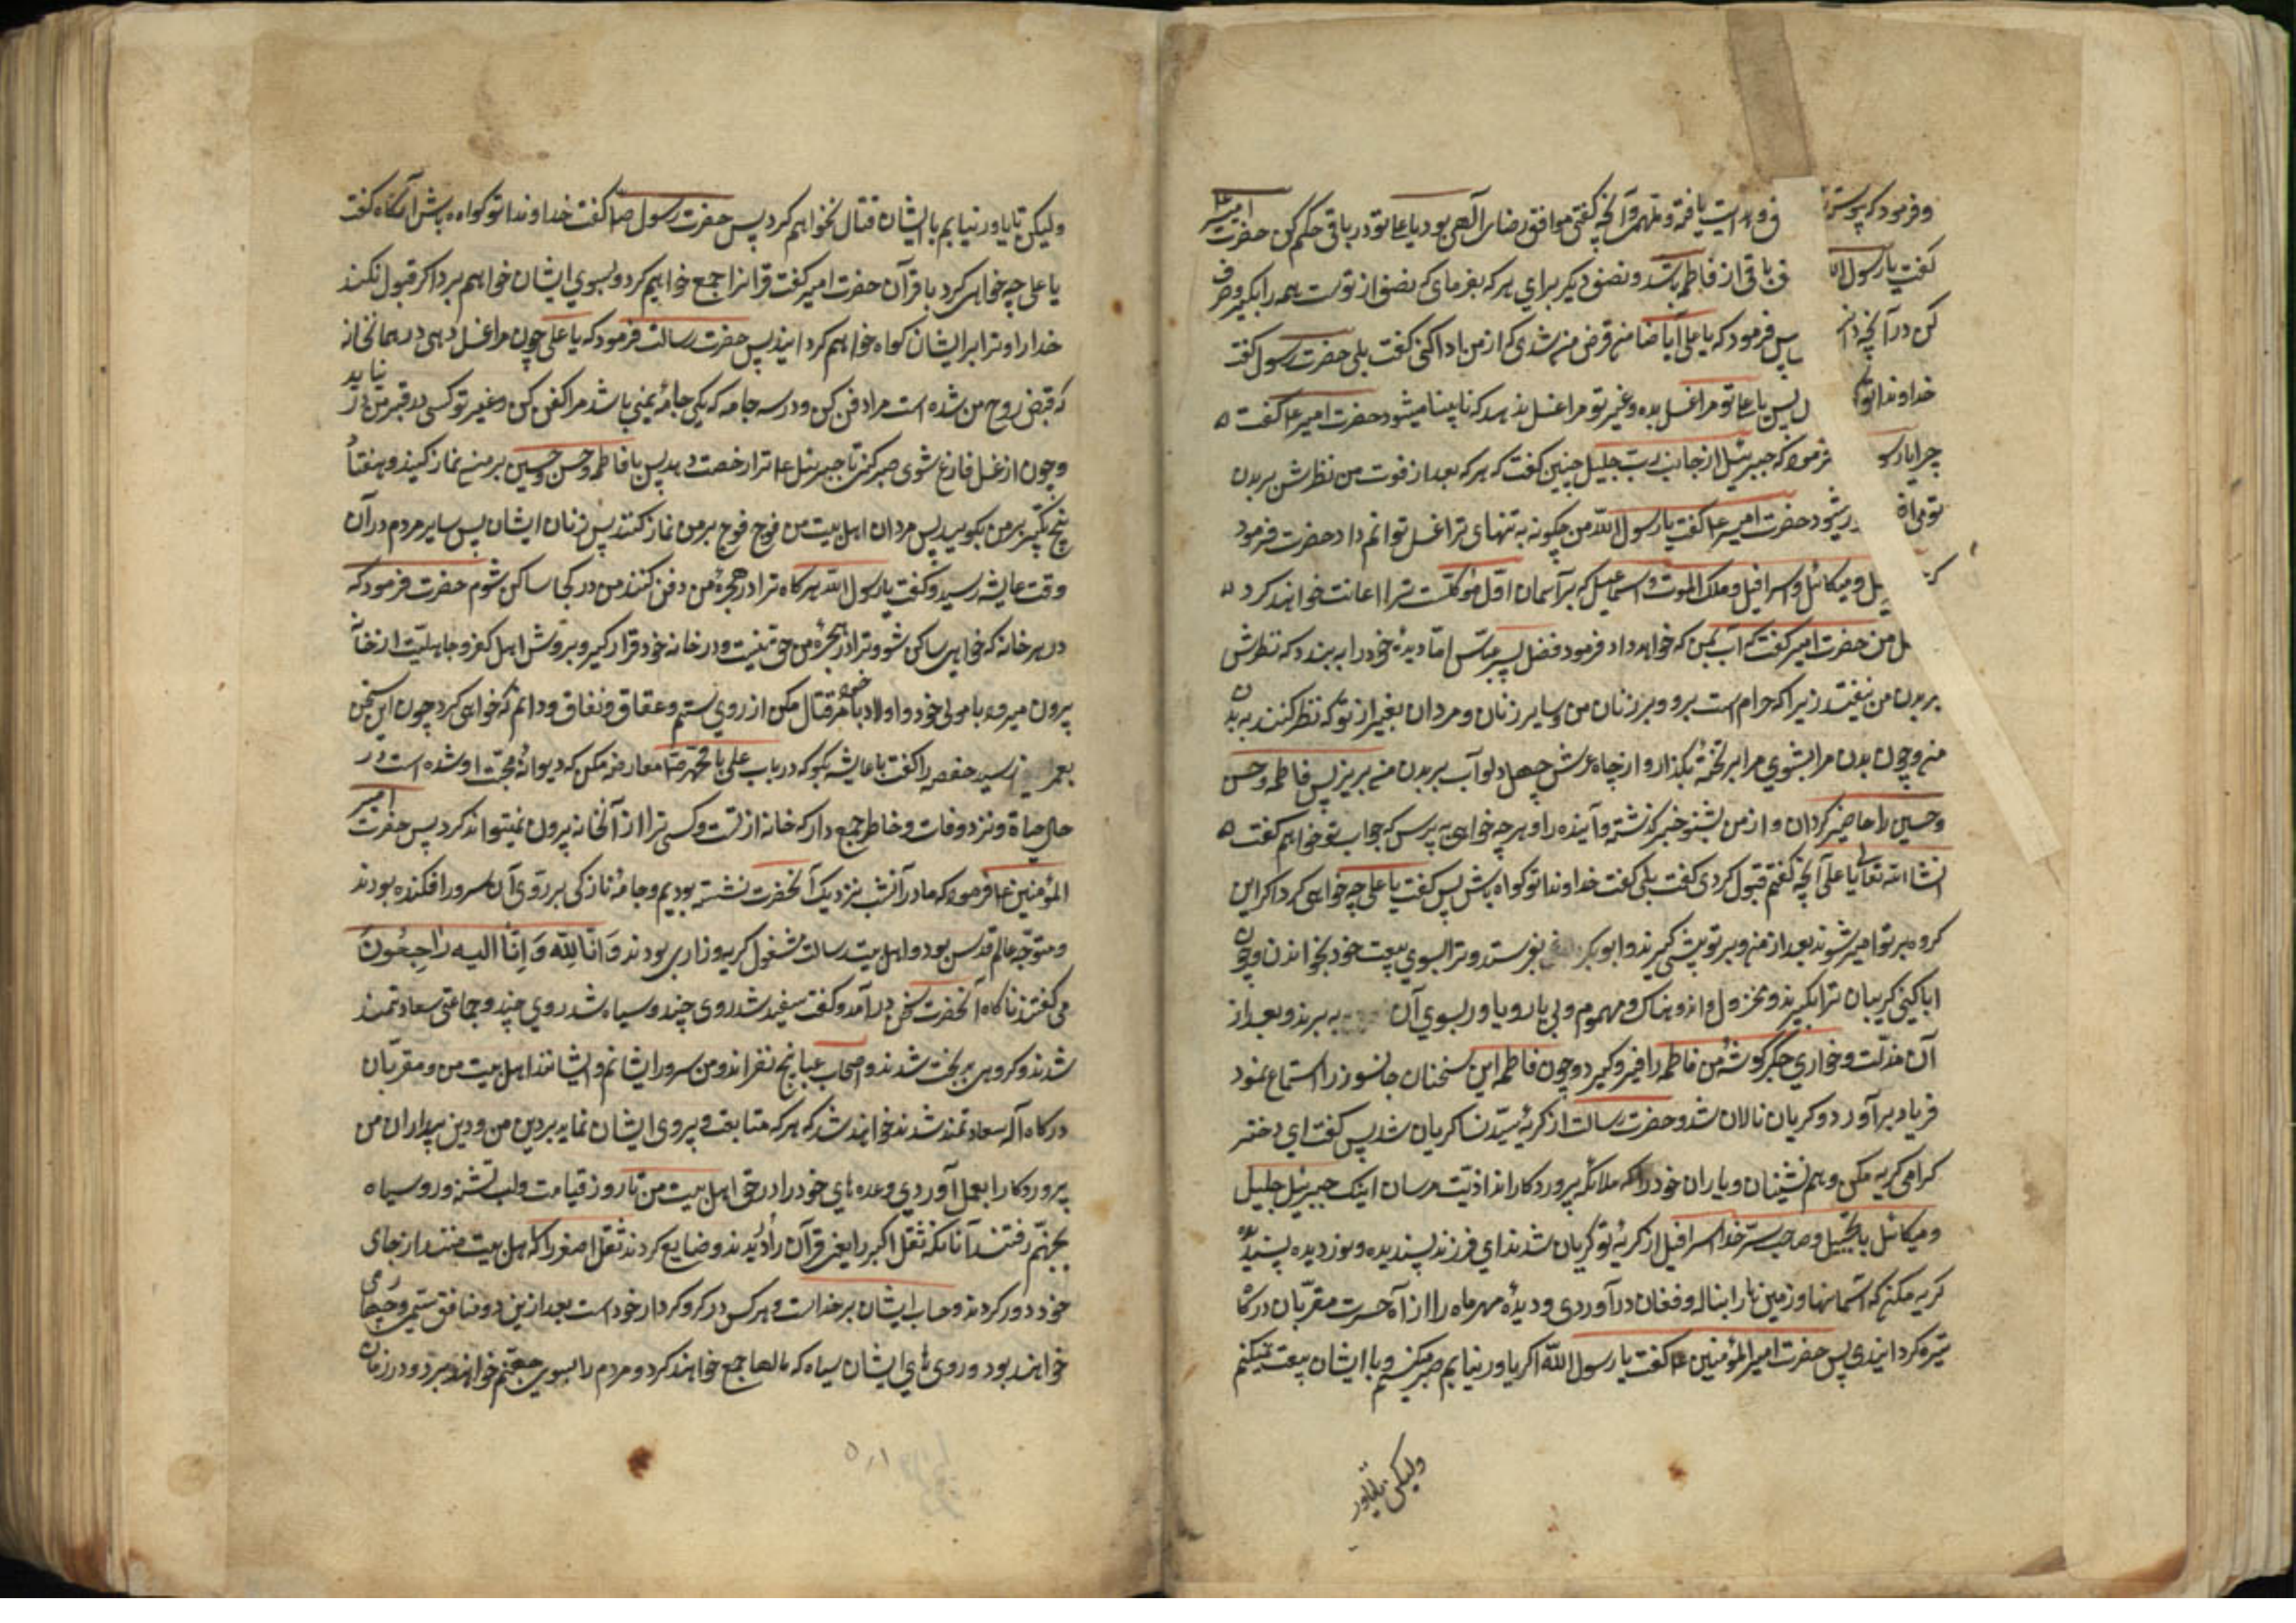 و فرمود که پیوسته ف و هدایت یافته و ملهمی و آنچه گفتی موافق رضای الهی بود یا علی تو در باقی حکم کن حضرت امیر
گفت یا رسول الله ف باقی از فاطمه باشد و نصف دیگر برای هر که بفرمای که نصف از توست همه را بگیر و صرف
کن در آنچه دانی پس فرمود که یا علی آیا ضامن قرض من شدی که از من ادا کنی گفت بلی حضرت رسول گفت
خداوندا تو گ پس یا علی تو مرا غسل بده و غیر تو مرا غسل ندهد که نابینا میشود حضرت امیر ع گفت
چرا یا رسو فرمود که جبرئیل از جانب رب جلیل چنین گفت که هر که بعد از فوت من نظرش بر بدن
تو می اف ر شود حضرت امیر ع گفت یا رسول الله من چگونه به تنهای ترا غسل توانم داد حضرت فرمود
که یل و میکائیل و اسرافیل و ملک الموت و اسماعیل که بر آسمان اول موکلست ترا اعانت خواهند کرد
ل من حضرت امیر گفت که آب بمن که خواهد داد فرمود فضل پسر عباس اما دیدهٔ خود را به بندد که نظرش
بر بدن من نیفتد زیرا که حرام است بر و و بر زنان من و سایر زنان و مردان بغیر از تو که نظر کنند به بدن
من و چون بدن مرا بشوی مرا بر تخته بگذار و از چاه غرش چهل دلو آب بر بدن من بریز پس فاطمه و حسن
و حسین را حاضر گردان و از من بشنو خبر گذشته و آینده را و هر چه خواهی به پرس که جواب تو خواهم گفت
انشاالله تعالی یا علی آنچه گفتم قبول کردی گفت بلی گفت خداوندا تو گواه باش پس گفت یا علی چه خواهی کرد اگر این
گروه بر تو امیر شوند بعد از من و بر تو پیشی گیرند و ابوبکر بفرستد و ترا بسوی بیعت خود بخواند و چون
ابا کنی گریبان ترا بگیرند و محزول و اندوهناک و مهموم و بی یار و یاور بسوی آن به برند و بعد از
آن مذلت و خواری جگر گوشهٔ من فاطمه را فرو گیرد و چون فاطمه این سخنان جانسوز را استماع نمود
فریاد برآورد و گریان نالان شد و حضرت رسالت از گریهٔ سیده نسا گریان شد پس گفت ای دختر
گرامی گریه مکن و هم نشینان و یاران خود را که ملائکه پروردگارند اذیت مرسان اینک جبرئیل جلیل
و میکائیل با تبجیل و صاحب سر خدا اسرافیل از گریهٔ تو گریان شدند ای فرزند پسندیده و نور دیده پسندیده
گریه مکن که آسمانها و زمین ها را بناله و فغان درآوردی و دیدهٔ مهر ماه را از آه حسرت مقربان درگاه
تیره گردانیدی پس حضرت امیر المؤمنین ع گفت یا رسول الله اگر یاور نیابم صبر میکنم و با ایشان بیعت نمیکنم
ولیکن تا یاور
ولیکن تا یاور نیابم با ایشان قتال نخواهم کرد پس حضرت رسول ص گفت خداوندا تو گواه باش آنگاه گفت
یا علی چه خواهی کرد با قرآن حضرت امیر گفت قرآنرا جمع خواهم کرد و بسوی ایشان خواهم برد اگر قبول نکنند
خدا را و ترا بر ایشان گواه خواهم گردانید پس حضرت رسالت فرمود که یا علی چون مرا غسل دهی در همانخانه
که قبض روح من شده است مرا دفن کن و در سه جامه که یکی جامهٔ یمنی باشد مرا کفن کن و غیر تو کسی در قبر من در نیاید
و چون از غسل فارغ شوی صبر کن تا جبرئیل ع ترا رخصت دهد پس با فاطمه و حسن و حسین بر من نماز کنید و هفتاد
پنج تکبیر بر من بگویید پس مردان اهل بیت من فوج فوج بر من نماز کنند پس زنان ایشان پس سایر مردم در آن
وقت عایشه رسید و گفت یا رسول الله هرگاه ترا در حجرهٔ من دفن کنند من در کجا ساکن شوم حضرت فرمود که
در هر خانه که خواهی ساکن شو و ترا در حجرهٔ من حق نیست و در خانه خود قرار گیر و بروش اهل کفر و جاهلیت از خانه
بیرون میرو و با مولی خود و اولاد با امر خود قتال مکن از روی ستم و عقاق و نفاق و دانم که خواهی کرد چون این سخن
بعمر رسید حفصه را گفت با عایشه بگو که در باب علی با محمد ص معارضه مکن که دیوانهٔ محبت او شده است در
حال حیاة و نزد وفات و خاطر جمع دار که خانه از تست و کسی ترا از آنخانه بیرون نمیتواند کرد پس حضرت امیر
المؤمنین ع فرمود که ما در آنشب نزدیک آنحضرت نشسته بودیم و جامهٔ نازکی بر روی آن سرور افکنده بودند
و متوجه عالم قدس بود و اهل بیت رسالت مشغول گریه و زاری بودند و انا لله و انا الیه راجعون
می گفتند ناگاه آنحضرت بسخن درآمد و گفت سفید شد روی چند و سیاه شد روی چند و جماعتی سعادتمند
شدند و گروهی بدبخت شدند و اصحاب عبا پنج نفراند و من سرور ایشانم و ایشانند اهل بیت من و مقربان
درگاه اله سعادتمند شدند خواهند شد که هر که متابعت و پیروی ایشان نماید بر دین من و دین پدران من
پروردگار را بعمل آوردی وعده های خود را در حق اهل بیت من تا روز قیامت و لب تشنه و رو سیاه
بجهنم رفتند آنانکه ثقل اکبر را یعنی قرآن را دریدند و ضایع کردند ثقل اصغر را که اهل بیت منند از جای
خود دور کردند و حساب ایشان بر خداست و هر کس در گرو کردار خود است بعد ازین دو منافق ستم و جفا می
خواهند بود و روی های ایشان سیاه که مالها جمع خواهند کرد و مردم را بسوی جهنم خواهند برد و در زمان